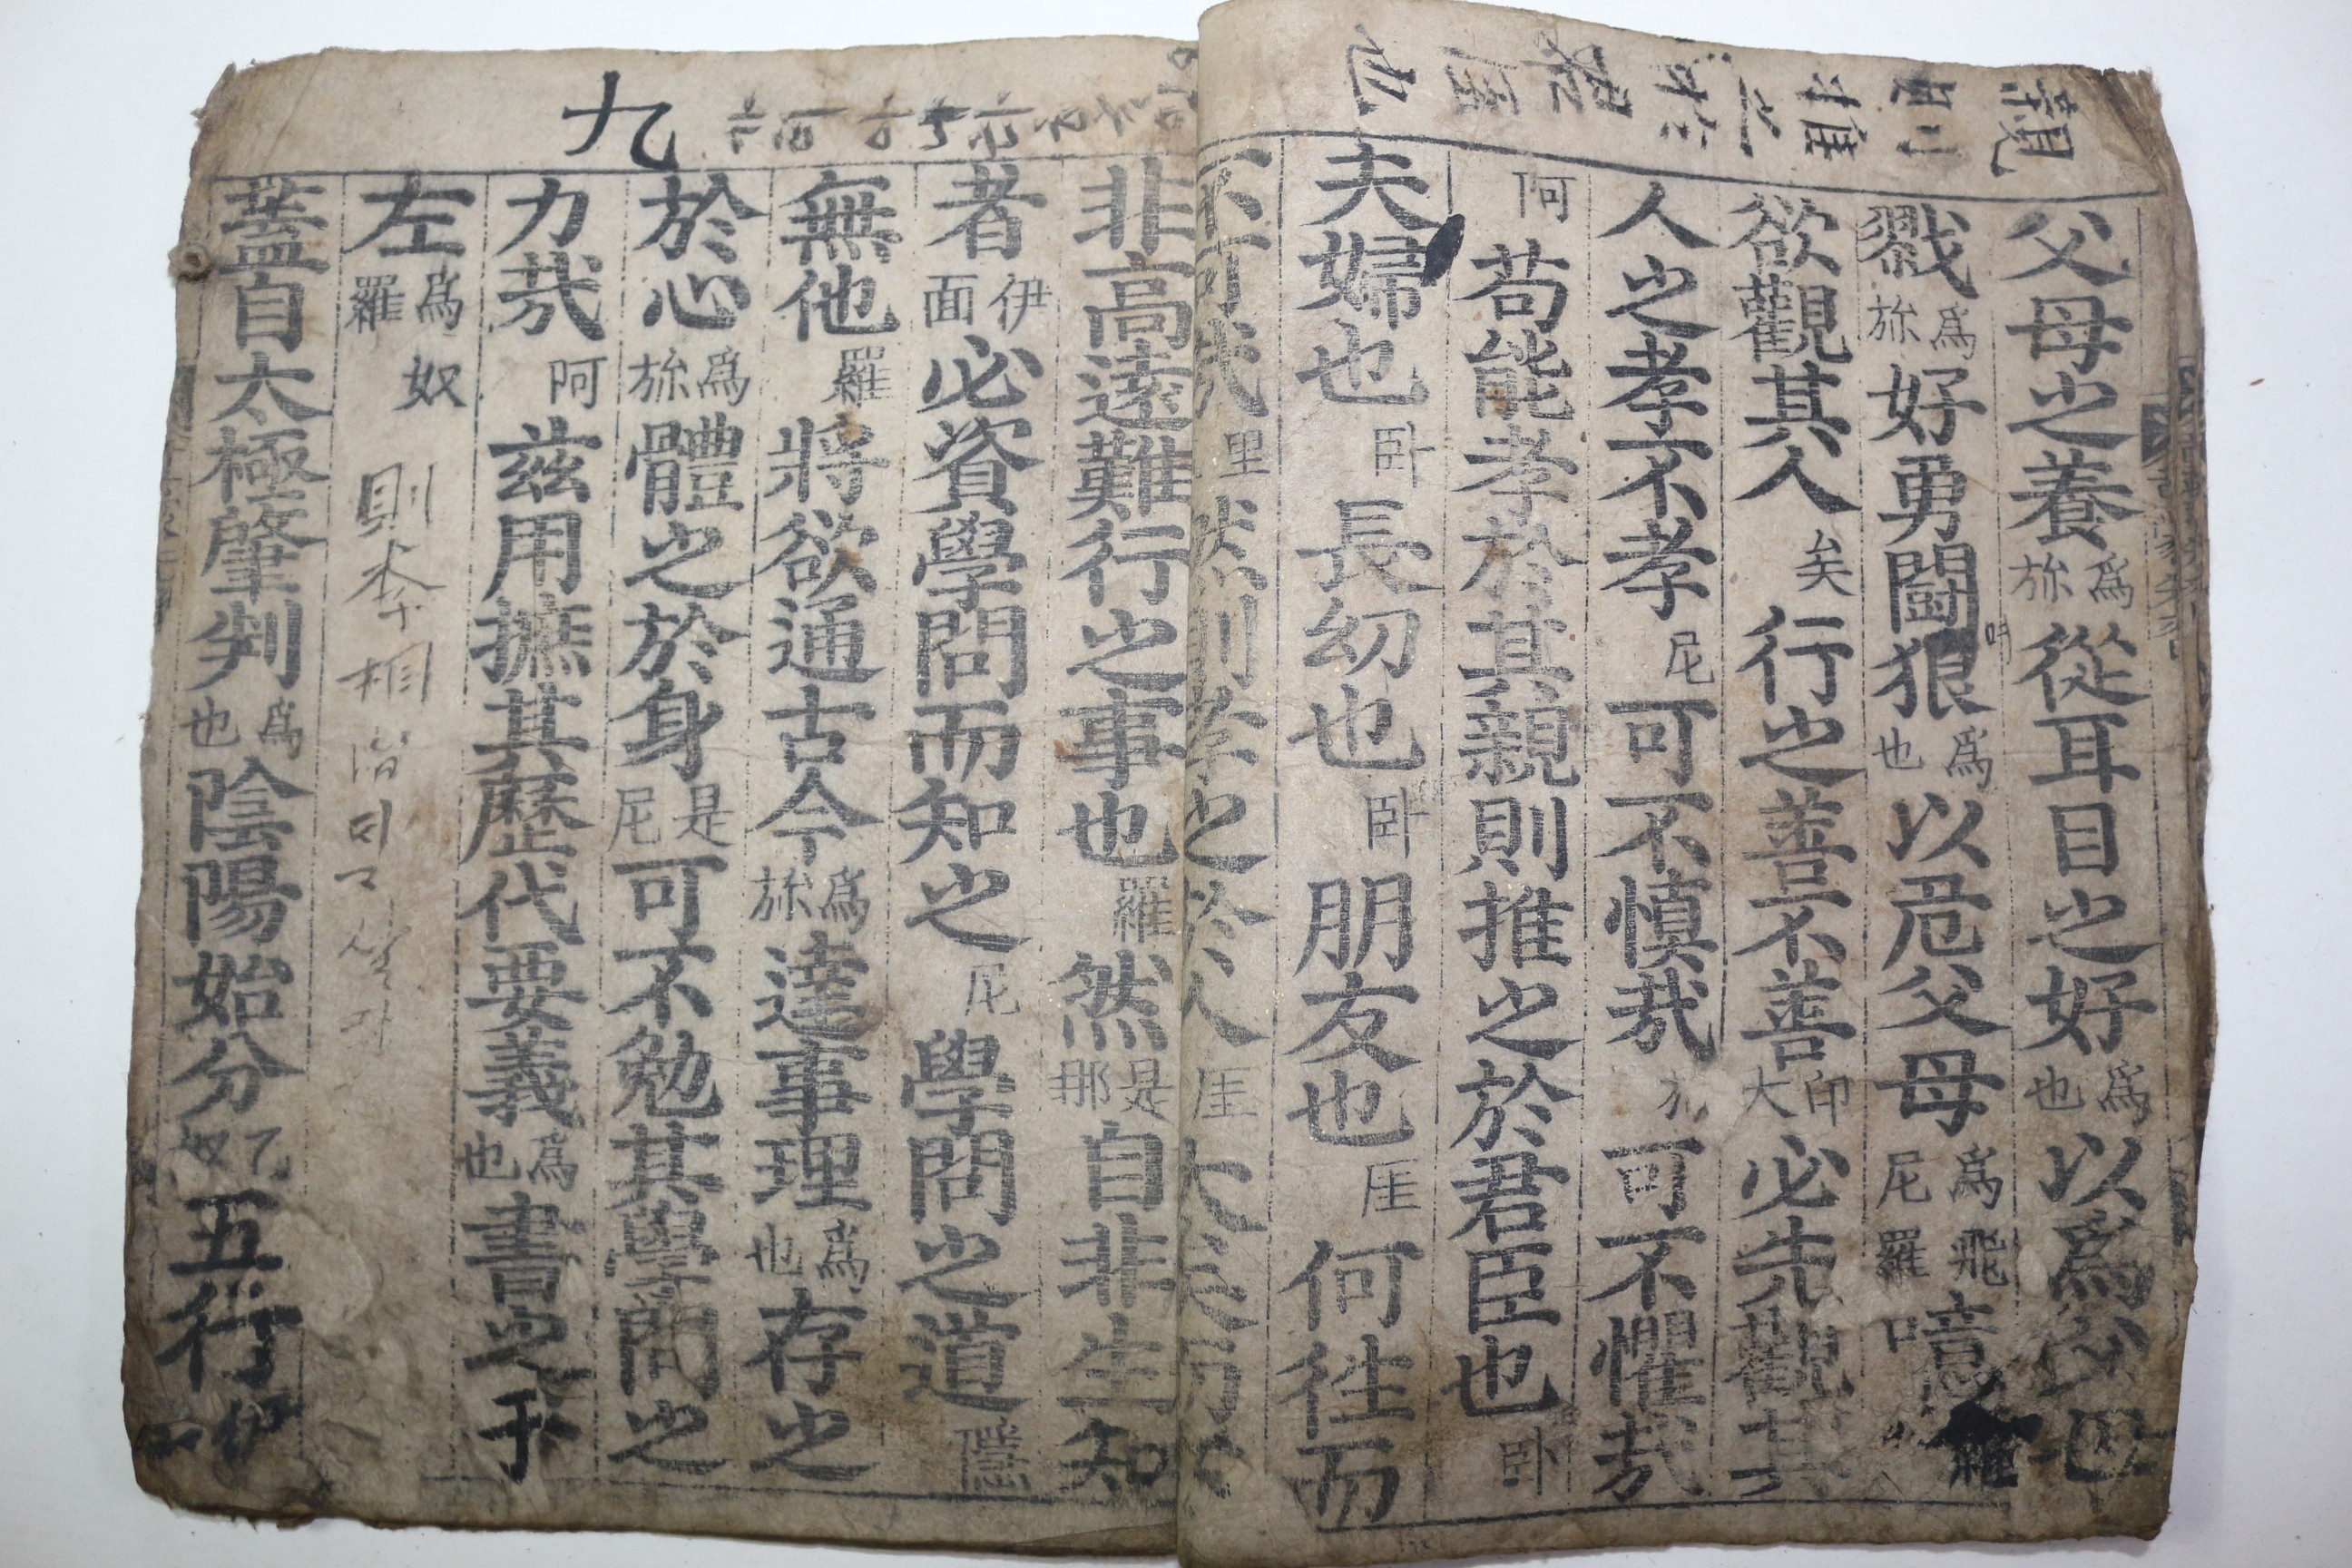 親則推之於君臣也
父母之養爲㫆從耳目之好爲也以爲父母
戮爲㫆好勇鬪狠爲也以危父母爲飛尼羅噫口
欲觀其人矣行之善不善印大必先觀其
人之孝不孝尼可不愼哉可不懼哉
阿苟能孝於其親則推之於君臣也卧
夫婦也卧長幼也卧朋友也厓何往而
不可哉里然則孝之於人厓大矣
九
非高遠難行之事也羅然是那自非生知
者伊面必資學問而知之尼學問之道隱
無他羅將欲通古今爲㫆達事理爲也存之
於心爲㫆體之於身是尼可不勉其學問之
力哉阿茲用摭其歷代要義爲也書之于
左爲羅奴
則李相
蓋自太極肇判爲也陰陽始分奴五行伊